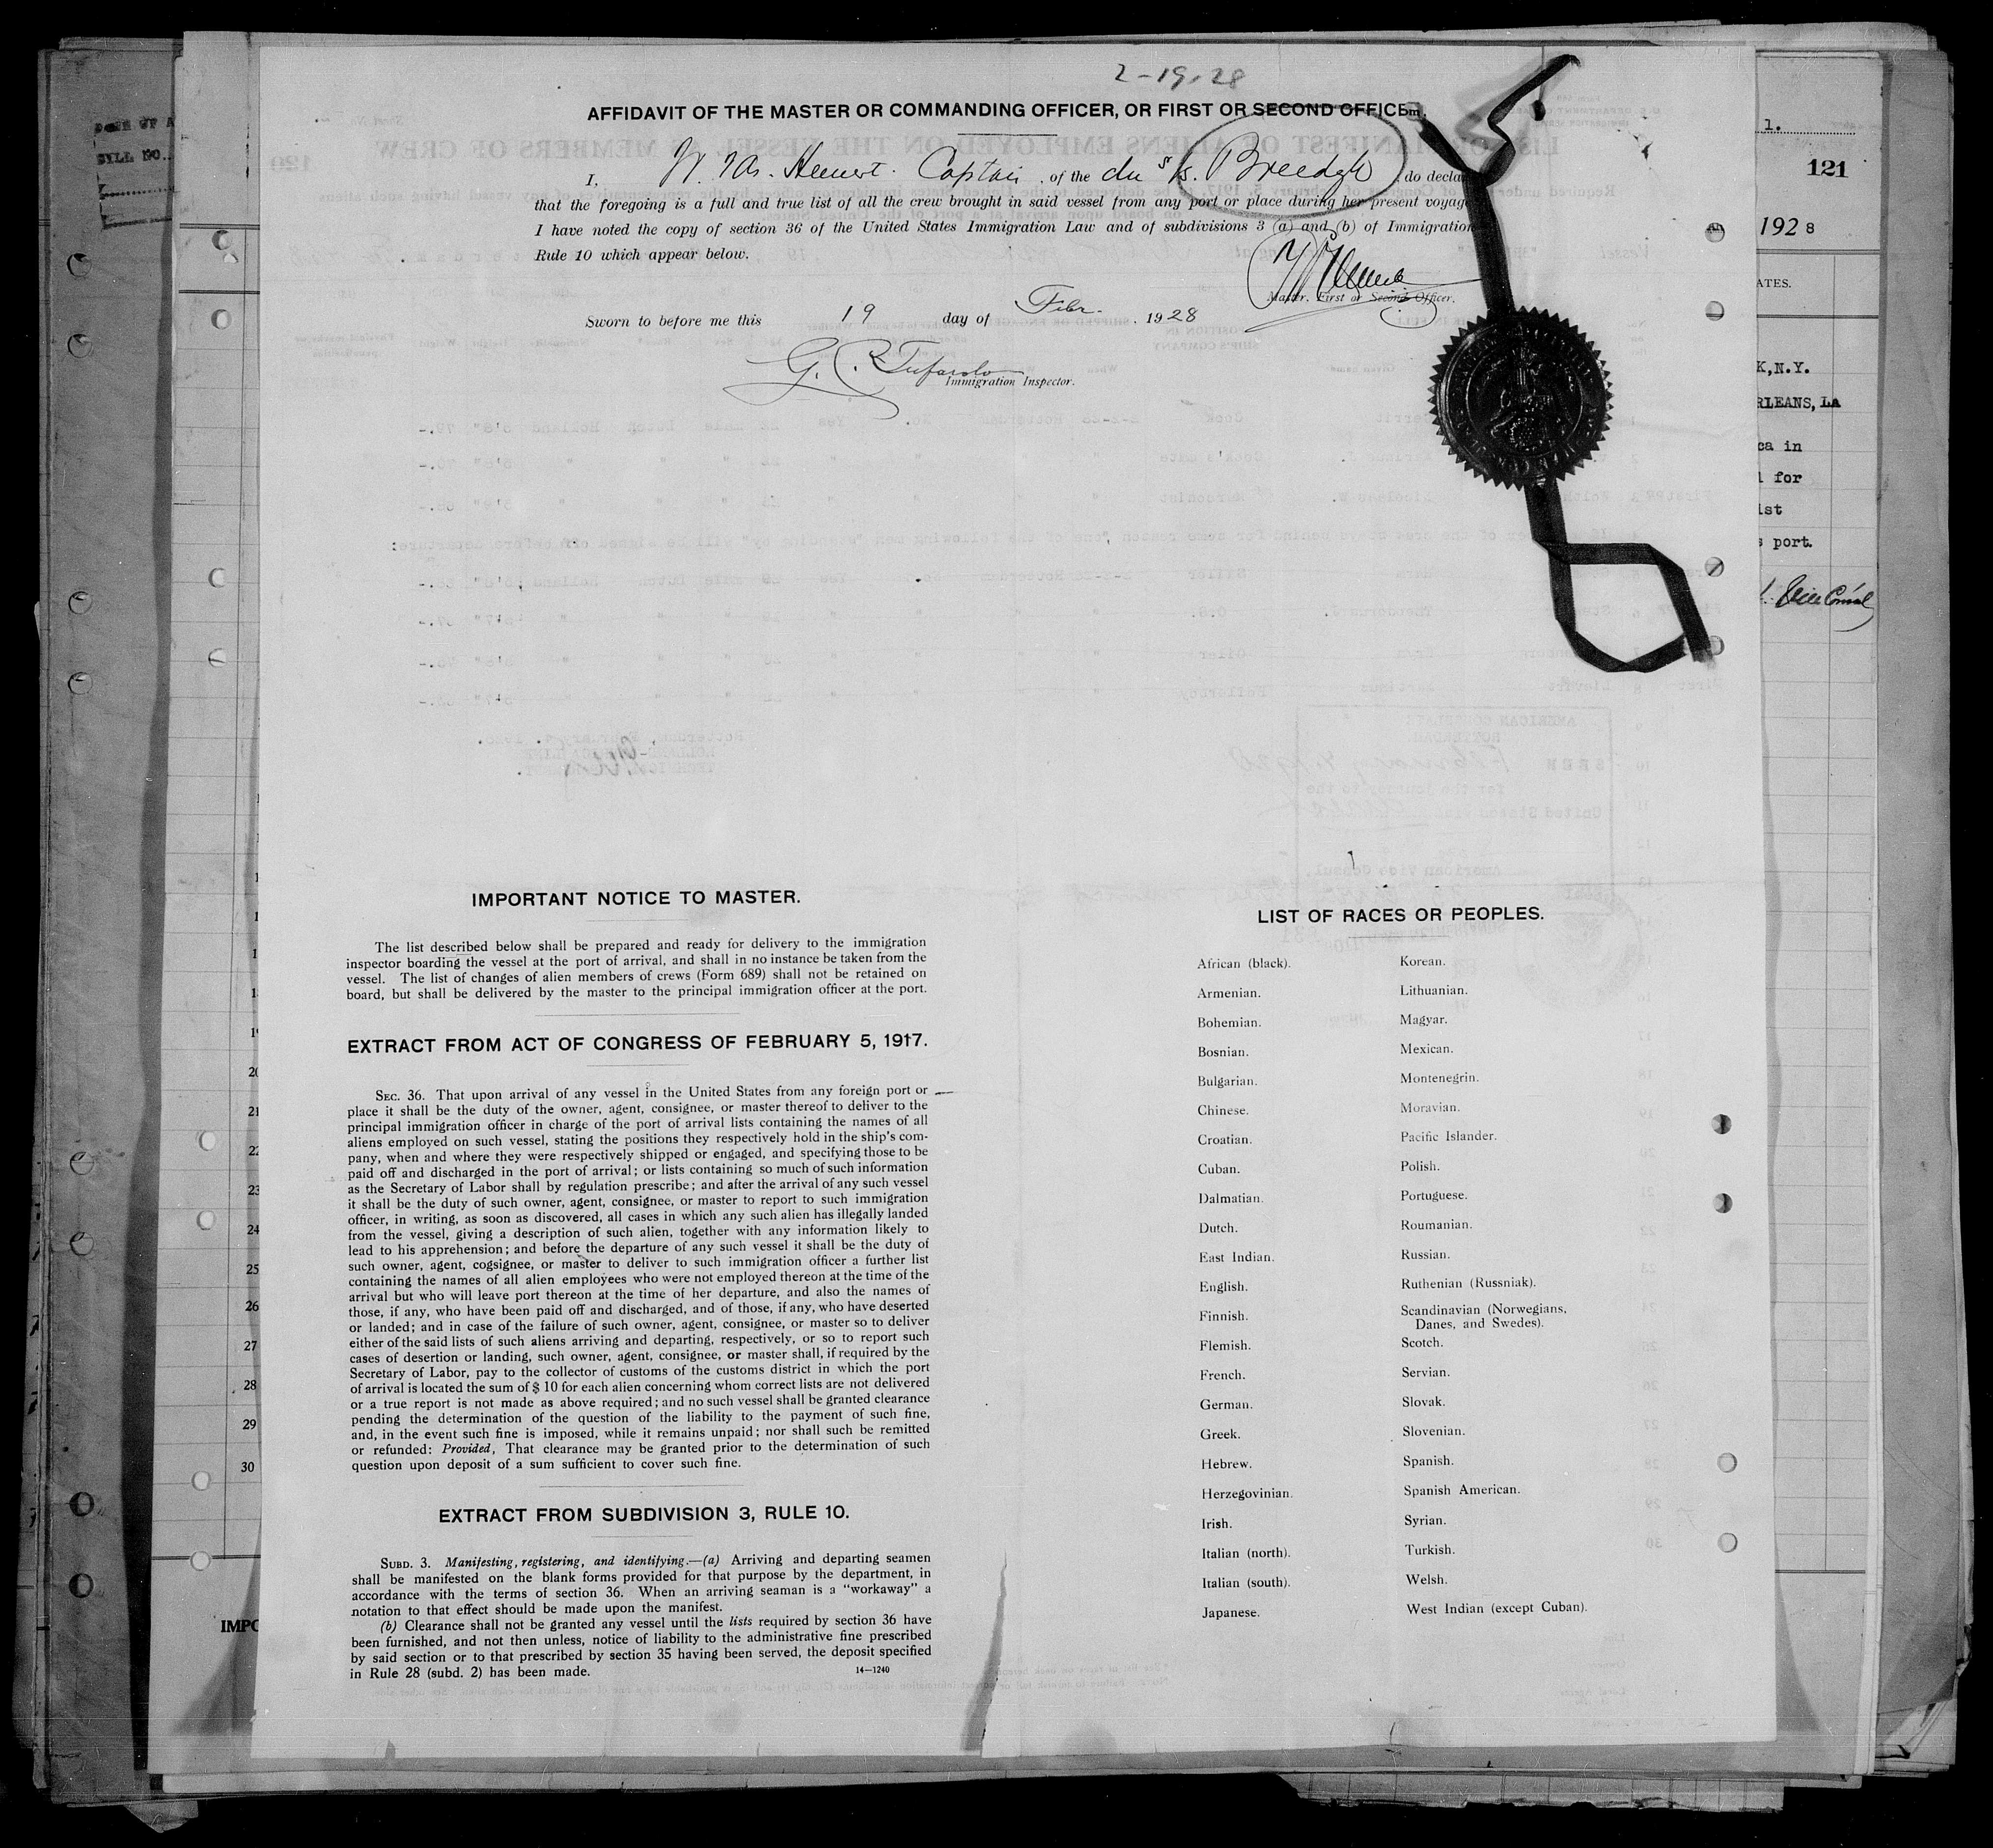 2-19-28
AFFIDAVIT OF THE MASTER OR COMMANDING OFFICER, OR FIRST OR SECOND OFFICE
I, Captain of the du S/s. do decla
that the foregoing is a full and true list of all the crew brought in said vessel from any port or place during her present voyag
I have noted the copy of section 36 of the United States Immigration Law and of subdivisions 3 (a) and (b) of Immigration
Rule 10 which appear below.
Master, First or Second Officer.
Sworn to before me this 19 day of Febr. , 1928
Immigration Inspector.
1.
121
192 8
ATES.
K,N.Y.
RLEANS, LA
ca in
l for
ist
s port.
Vice Consul
IMPORTANT NOTICE TO MASTER.
The list described below shall be prepared and ready for delivery to the immigration
inspector boarding the vessel at the port of arrival, and shall in no instance be taken from the
vessel. The list of changes of alien members of crews (Form 689) shall not be retained on
board, but shall be delivered by the master to the principal immigration officer at the port.
EXTRACT FROM ACT OF CONGRESS OF FEBRUARY 5, 1917.
SEC. 36. That upon arrival of any vessel in the United States from any foreign port or
place it shall be the duty of the owner, agent, consignee, or master thereof to deliver to the
principal immigration officer in charge of the port of arrival lists containing the names of all
aliens employed on such vessel, stating the positions they respectively hold in the ship's com-
pany, when and where they were respectively shipped or engaged, and specifying those to be
paid off and discharged in the port of arrival; or lists containing so much of such information
as the Secretary of Labor shall by regulation prescribe; and after the arrival of any such vessel
it shall be the duty of such owner, agent, consignee, or master to report to such immigration
officer, in writing, as soon as discovered, all cases in which any such alien has illegally landed
from the vessel, giving a description of such alien, together with any information likely to
lead to his apprehension; and before the departure of any such vessel it shall be the duty of
such owner, agent, cogsignee, or master to deliver to such immigration officer a further list
containing the names of all alien employees who were not employed thereon at the time of the
arrival but who will leave port thereon at the time of her departure, and also the names of
those, if any, who have been paid off and discharged, and of those, if any, who have deserted
or landed; and in case of the failure of such owner, agent, consignee, or master so to deliver
either of the said lists of such aliens arriving and departing, respectively, or so to report such
cases of desertion or landing, such owner, agent, consignee, or master shall, if required by the
Secretary of Labor, pay to the collector of customs of the customs district in which the port
of arrival is located the sum of $ 10 for each alien concerning whom correct lists are not delivered
or a true report is not made as above required; and no such vessel shall be granted clearance
pending the determination of the question of the liability to the payment of such fine,
and, in the event such fine is imposed, while it remains unpaid; nor shall such be remitted
or refunded: Provided, That clearance may be granted prior to the determination of such
question upon deposit of a sum sufficient to cover such fine.
EXTRACT FROM SUBDIVISION 3, RULE 10.
SUBD. 3. Manifesting, registering, and identifying.—(a) Arriving and departing seamen
shall be manifested on the blank forms provided for that purpose by the department, in
accordance with the terms of section 36. When an arriving seaman is a "workaway" a
notation to that effect should be made upon the manifest.
(b) Clearance shall not be granted any vessel until the lists required by section 36 have
been furnished, and not then unless, notice of liability to the administrative fine prescribed
by said section or to that prescribed by section 35 having been served, the deposit specified
in Rule 28 (subd. 2) has been made.
14—1240
LIST OF RACES OR PEOPLES.
African (black).
Armenian.
Bohemian.
Bosnian.
Bulgarian.
Chinese.
Croatian.
Cuban.
Dalmatian.
Dutch.
East Indian.
English.
Finnish.
Flemish.
French.
German.
Greek.
Hebrew.
Herzegovinian.
Irish.
Italian (north).
Italian (south).
Japanese.
Korean.
Lithuanian.
Magyar.
Mexican.
Montenegrin.
Moravian.
Pacific Islander.
Polish.
Portuguese.
Roumanian.
Russian.
Ruthenian (Russniak).
Scandinavian (Norwegians,
Danes, and Swedes).
Scotch.
Servian.
Slovak.
Slovenian.
Spanish.
Spanish American.
Syrian.
Turkish.
Welsh.
West Indian (except Cuban).
19
20
21
22
23
24
25
26
27
28
29
30
IMPO